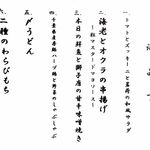 一、トマトとズッキーニと生姜の和風サラダ
二、海老とオクラの串揚げ
〜粒マスタードマヨソース〜
三、本日の鮮魚と獅子唐の甘辛味噌焼き
四、千葉県産香鶏ハーブ鶏と野菜のしゃぶしゃぶ
五、〆うどん
六、二種のわらびもち